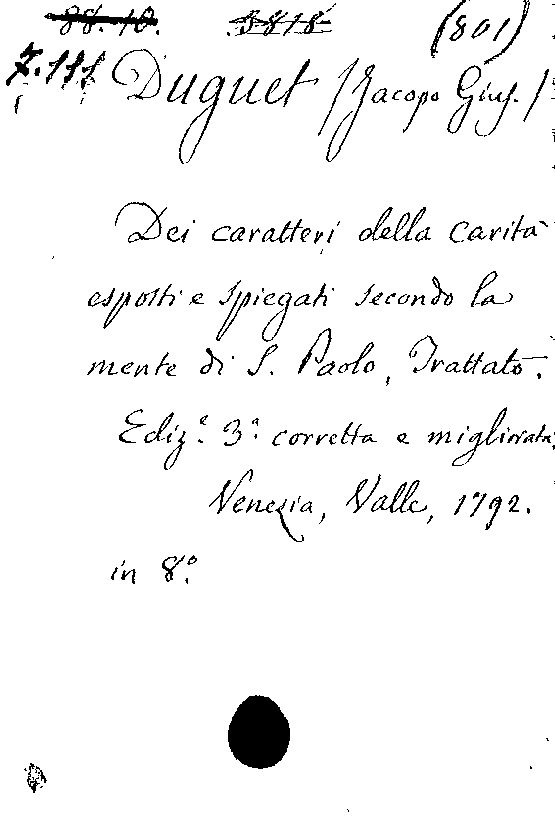 88.10. 3818 (801)
Z.111 Duguet /Jacopo Gius./
Dei caratteri della carità
esposti e spiegati secondo la
mente di S. Paolo, Trattato.
Ediz.e 3.a corretta e migliorata.
Venezia, Valle, 1792.
in 8.o